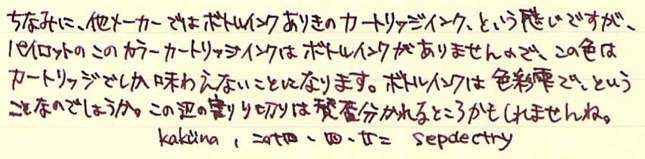 ちなみに、他メーカーではボトルインクありきのカートリッジインク、という感じですが、
パイロットのこのカラーカートリッジインクはボトルインクがありませんので、この色は
カートリッジでしか味わえないことになります。ボトルインクは色彩雫で、という
ことなのでしょうか。この辺の割り切りは賛否分かれるところかもしれませんね。
kaküna, 二〇十四・四・廿二